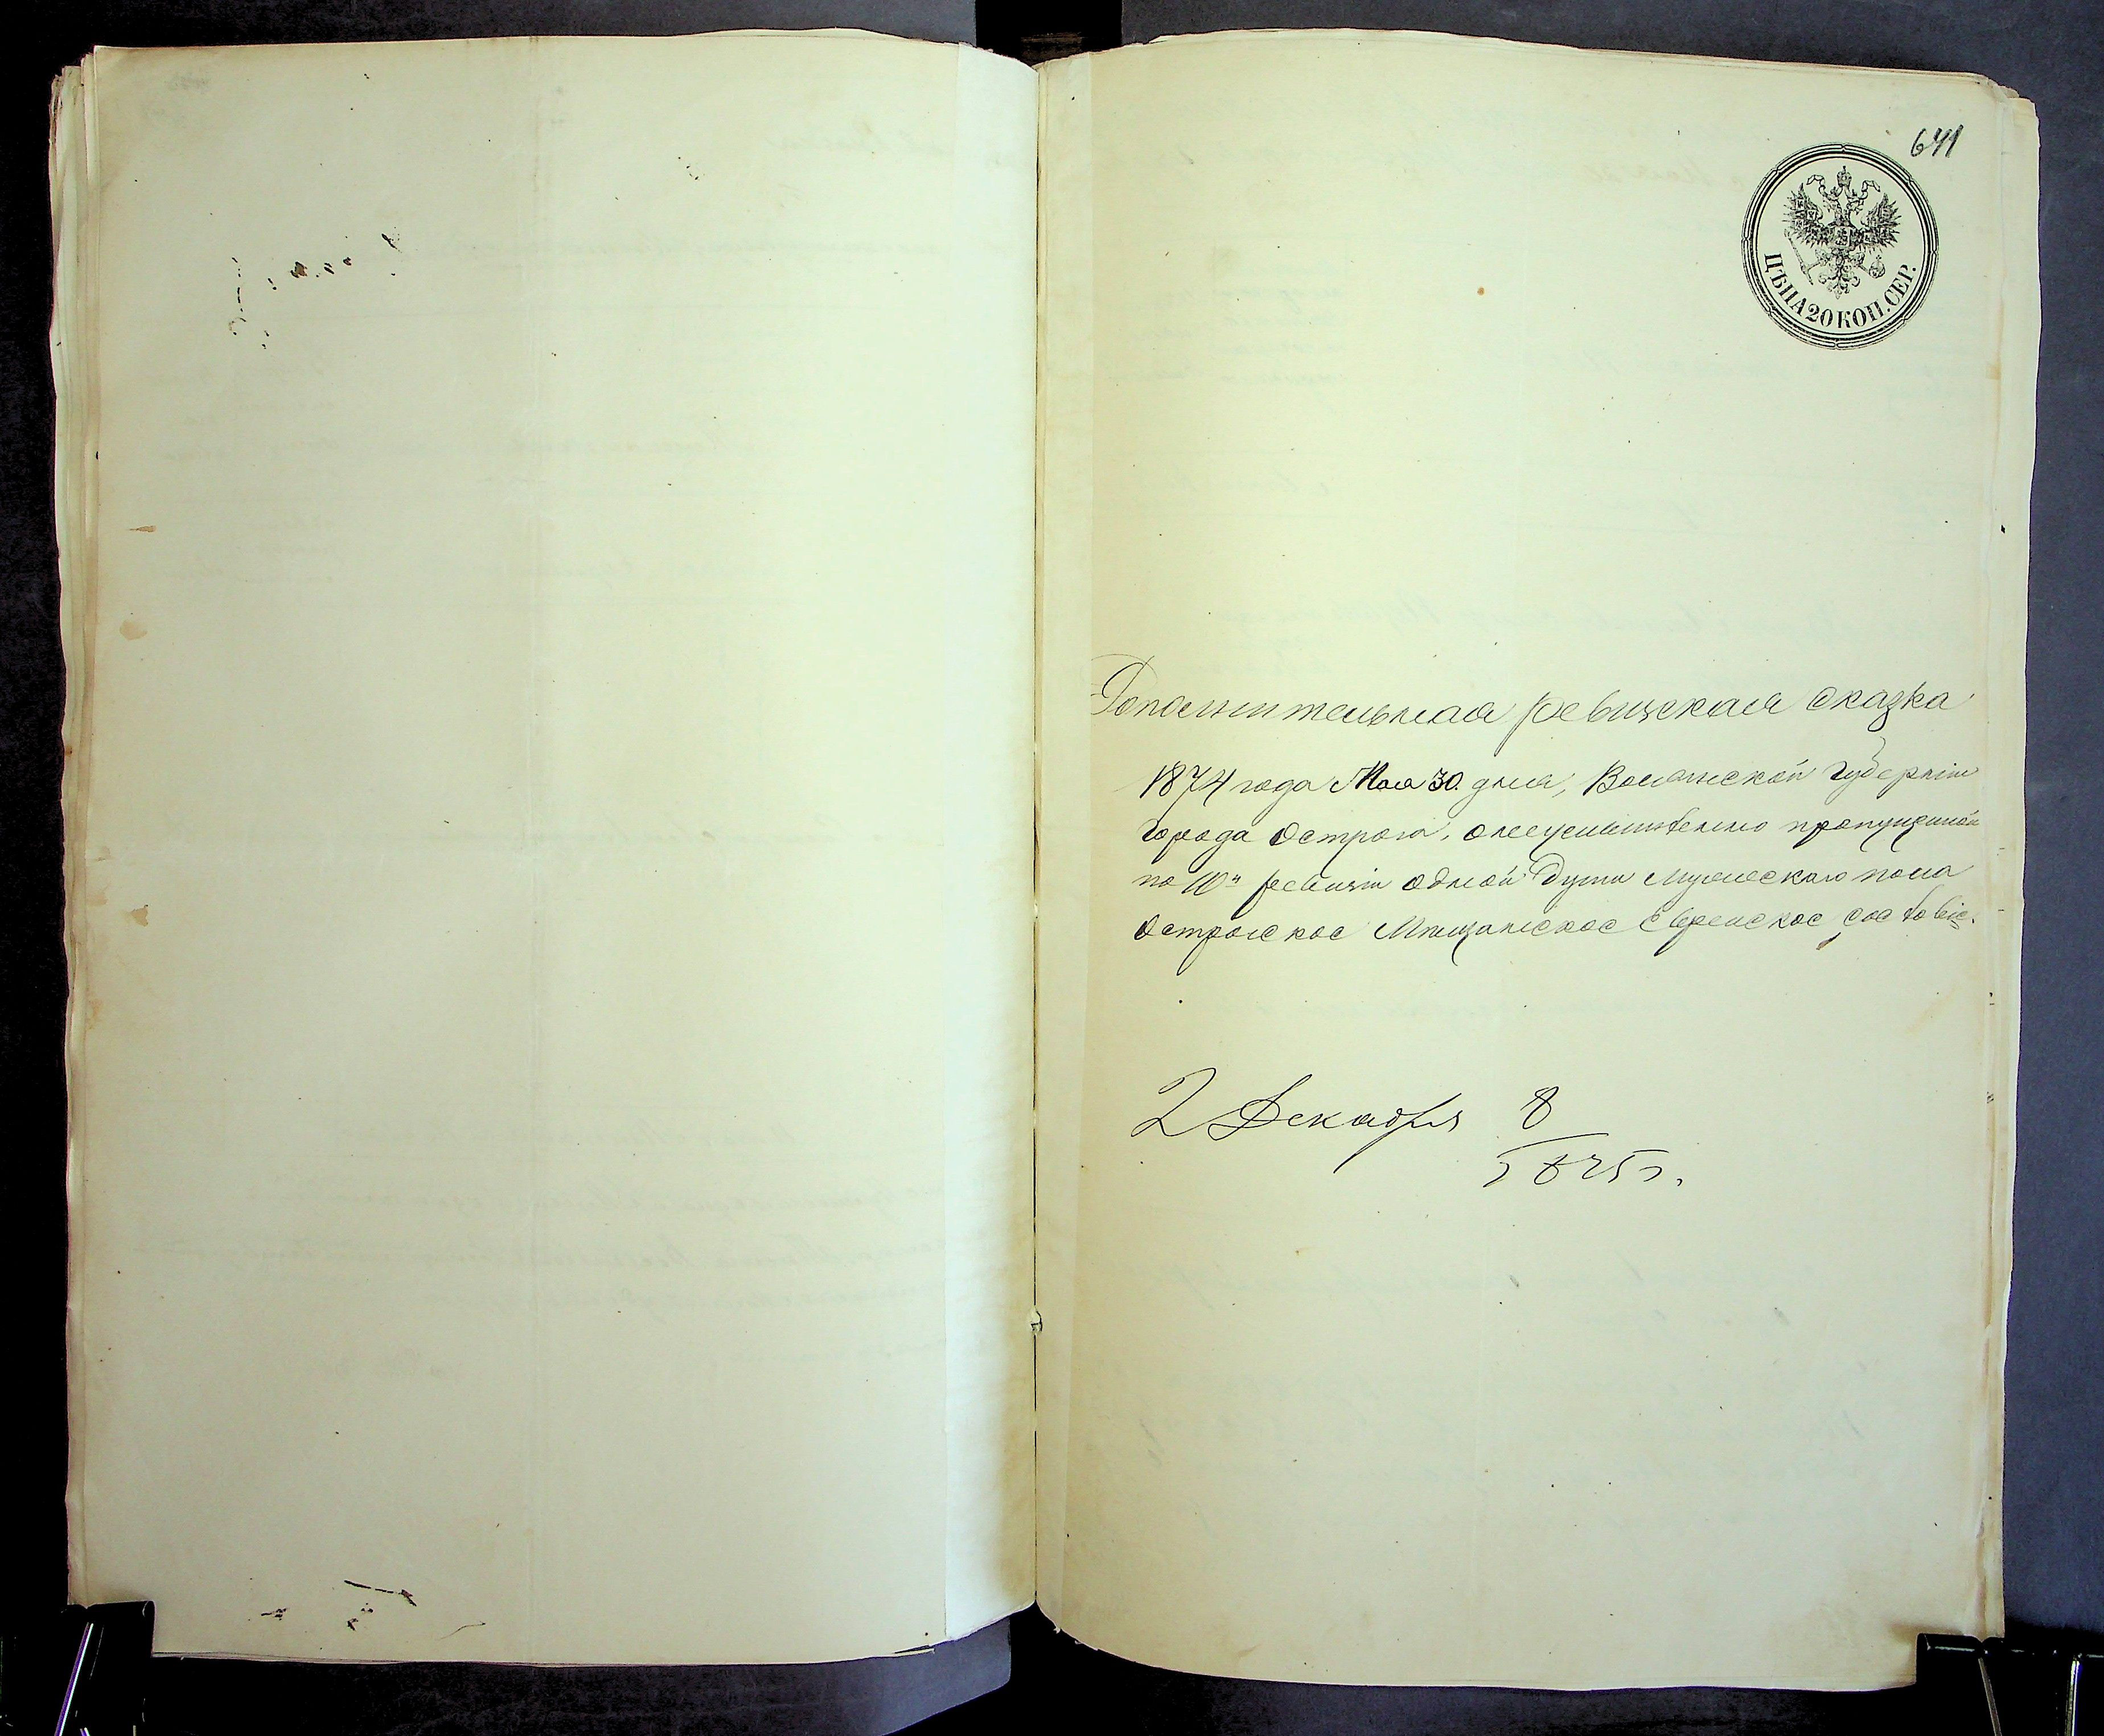 641
ЦѢНА 20 КОП. СЕР.
Дополнительная ревизская сказка
1874 года Мая 30. дня, Волынской губернiи
города Острога, о пропущеной
по 10й ревизiи одной души мужескаго пола
Острожское Мѣщанское Еврейское
2 Декабря 8